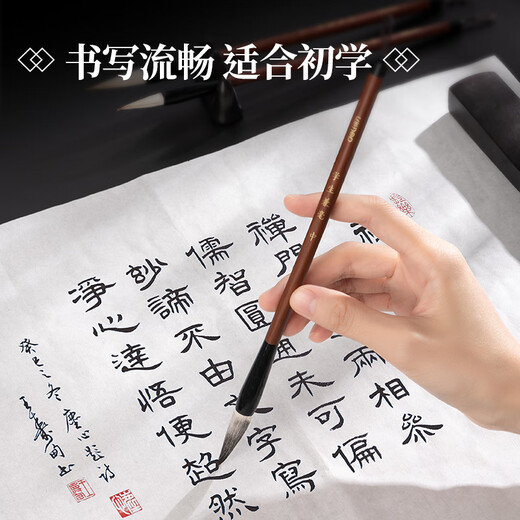 书写流畅 适合初学
学生兼毫 中
禪門
兩相參
儒智圓通未可偏
妙諦不由文字寫
淨心達悟便超然
癸巳之冬